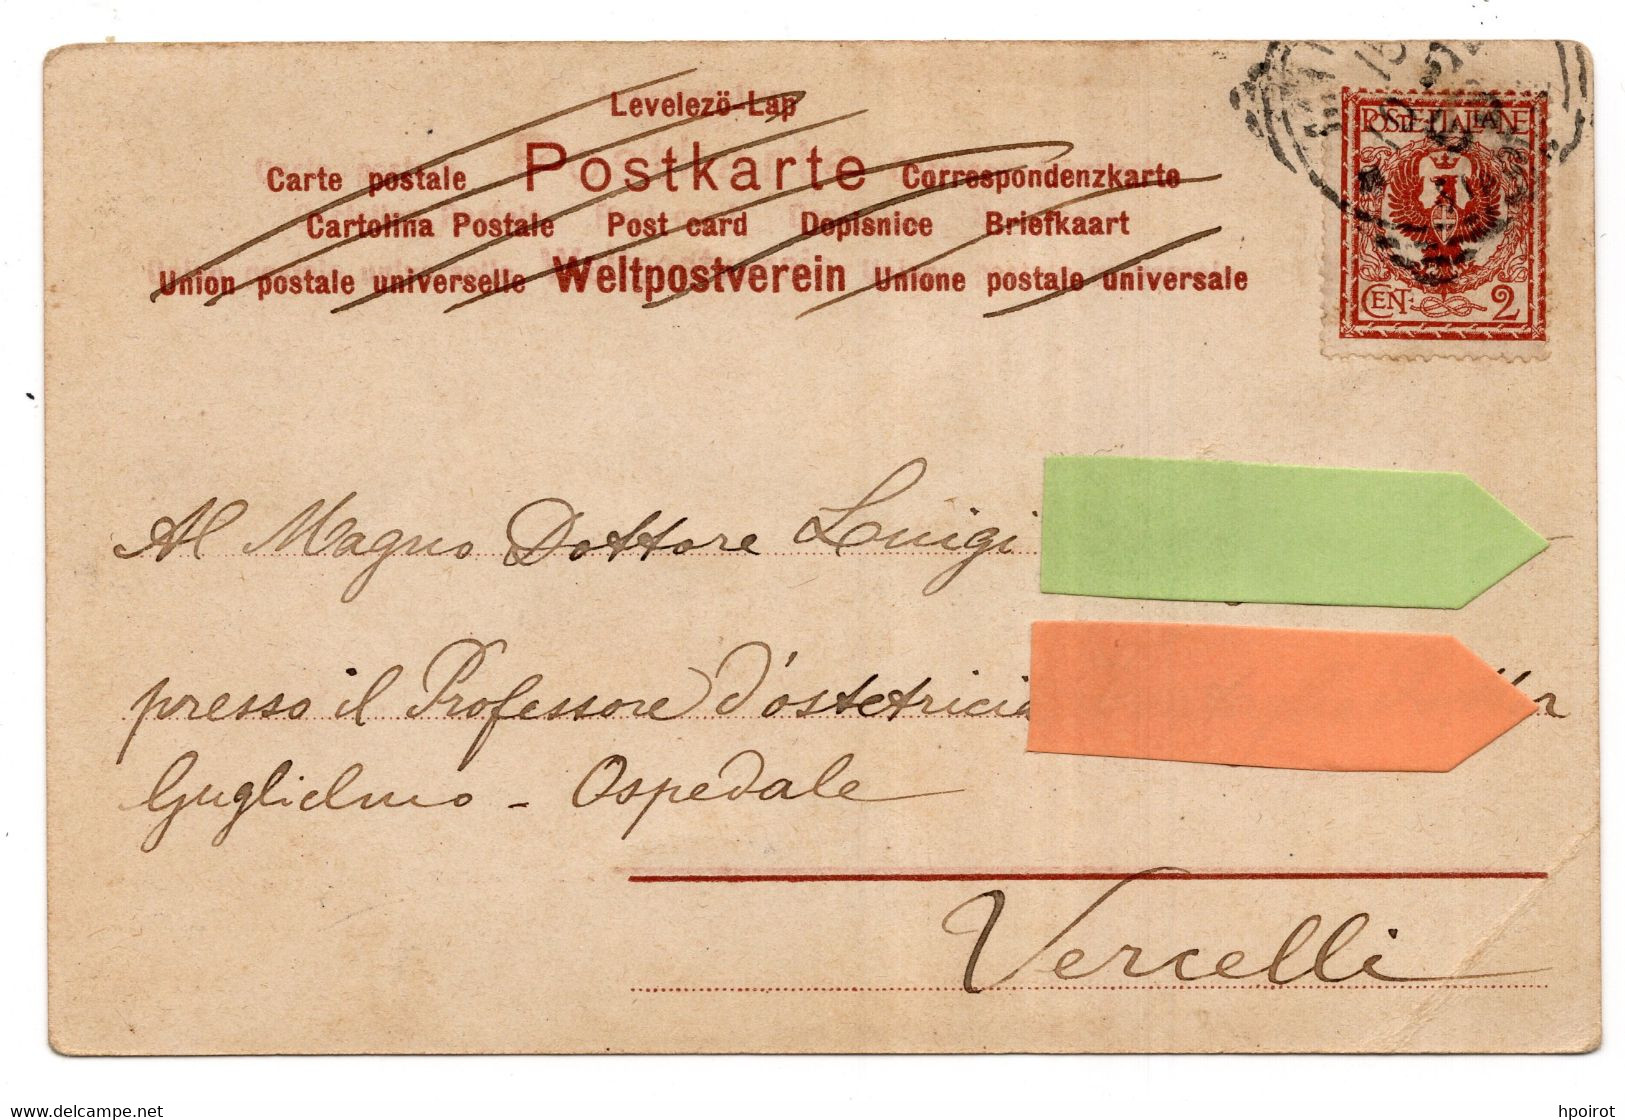 Levelezö-Lap
Carte postale Postkarte Correspondenzkarte
Cartolina Postale Post card Dopisnice Briefkaart
Union postale universelle Weltpostverein Unione postale universale
POSTE ITALIANE
CENT. 2
Al Magno Dottore Luigi
presso il Professore d'ostetricia
Guglielmo - Ospedale
Vercelli
delcampe.net
hpoirot